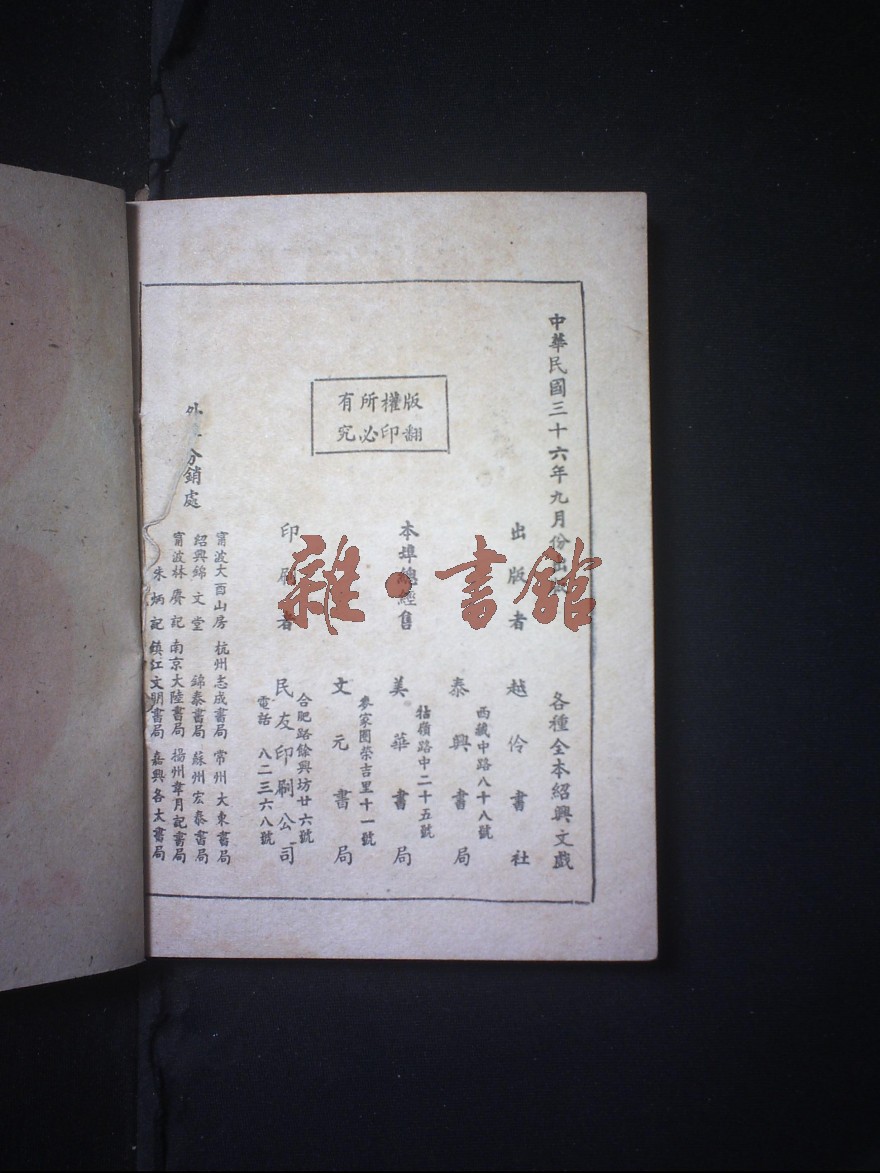 中華民國三十六年九月份出版
各種全本紹興文戲
版權所有
翻印必究
出版者
越伶書社
本埠總經售
泰興書局
西藏中路八十八號
美華書局
牯嶺路中二十五號
文元書局
麥家圈榮吉里十一號
印刷者
民友印刷公司
合肥路餘興坊廿六號
電話 八二三六八號
外 分銷處
甯波大酉山房 杭州志成書局 常州大東書局
紹興錦文堂 錦泰書局 蘇州宏泰書局
甯波林賡記 南京大陸書局 揚州韋月記書局
朱炳記 鎮江文明書局 嘉興各大書局
雜·書館